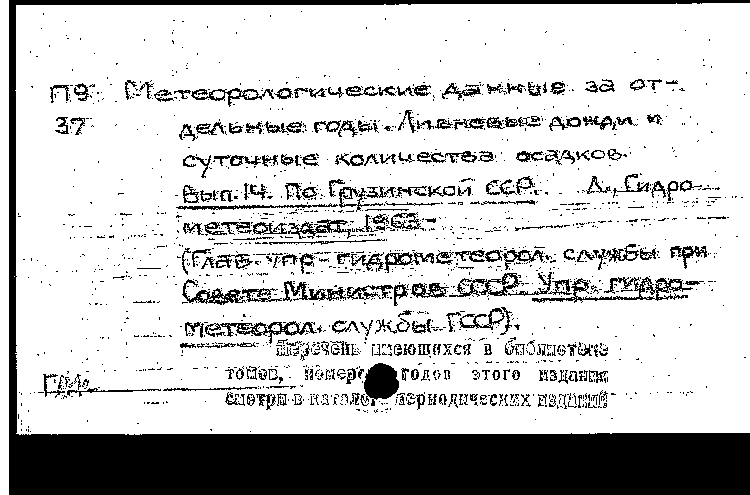 П9 Метеорологические данные за от-
37 дельные годы. Ливневые дожди и
суточные количества осадков.
Вып. 14. По Грузинской ССР. Л., Гидро-
метеоиздат, 1963-
(Глав. упр- гидрометеорол. службы при
Совете Министров СССР. Упр. гидро-
метеорол. службы ГССР).
Перечень имеющихся в библиотеке
томов, номеров годов этого издания
смотри в каталоге периодических изданий